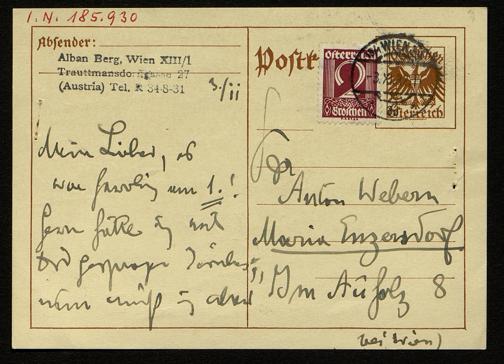 I.N. 185.930
Absender:
Alban Berg, Wien XIII/1
Trauttmansdorffgasse 27
(Austria) Tel. R 34-8-31
Postk
Österreich
2
Groschen
WIEN
Österreich
Mein Lieber, es
war herrlich am 1.!
Gern hätte ich mit
Dir
nun muß ich aber
Anton Webern
Maria Enzersdorf
Im Auholz 8
bei Wien)